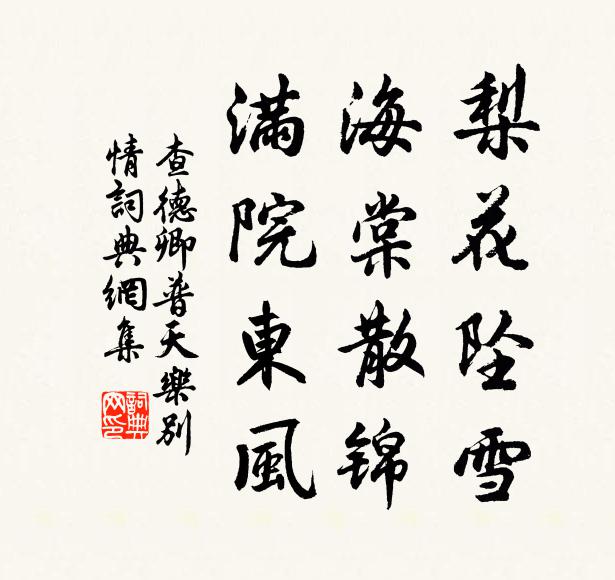 梨花坠雪
海棠散锦
满院東風
查德卿普天樂別
情詞典網集
詞典网印